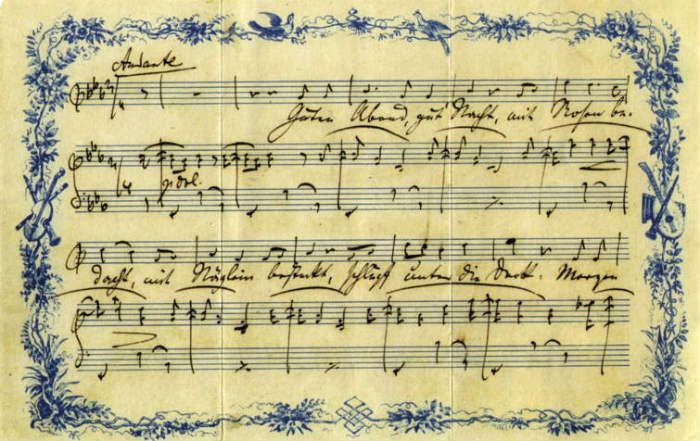 Andante
Guten Abend, gut' Nacht, mit Rosen be-
p dol.
dacht, mit Näglein besteckt, schlüpf unter die Deck. Morgen